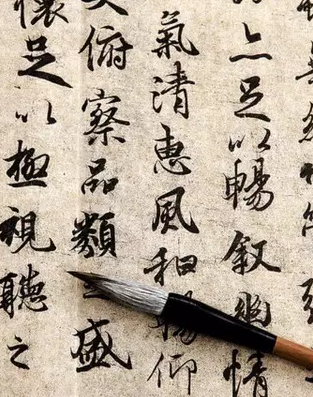 亦足以暢敘幽情
氣清惠風和暢仰
大俯察品類之盛
懷足以極視聽之